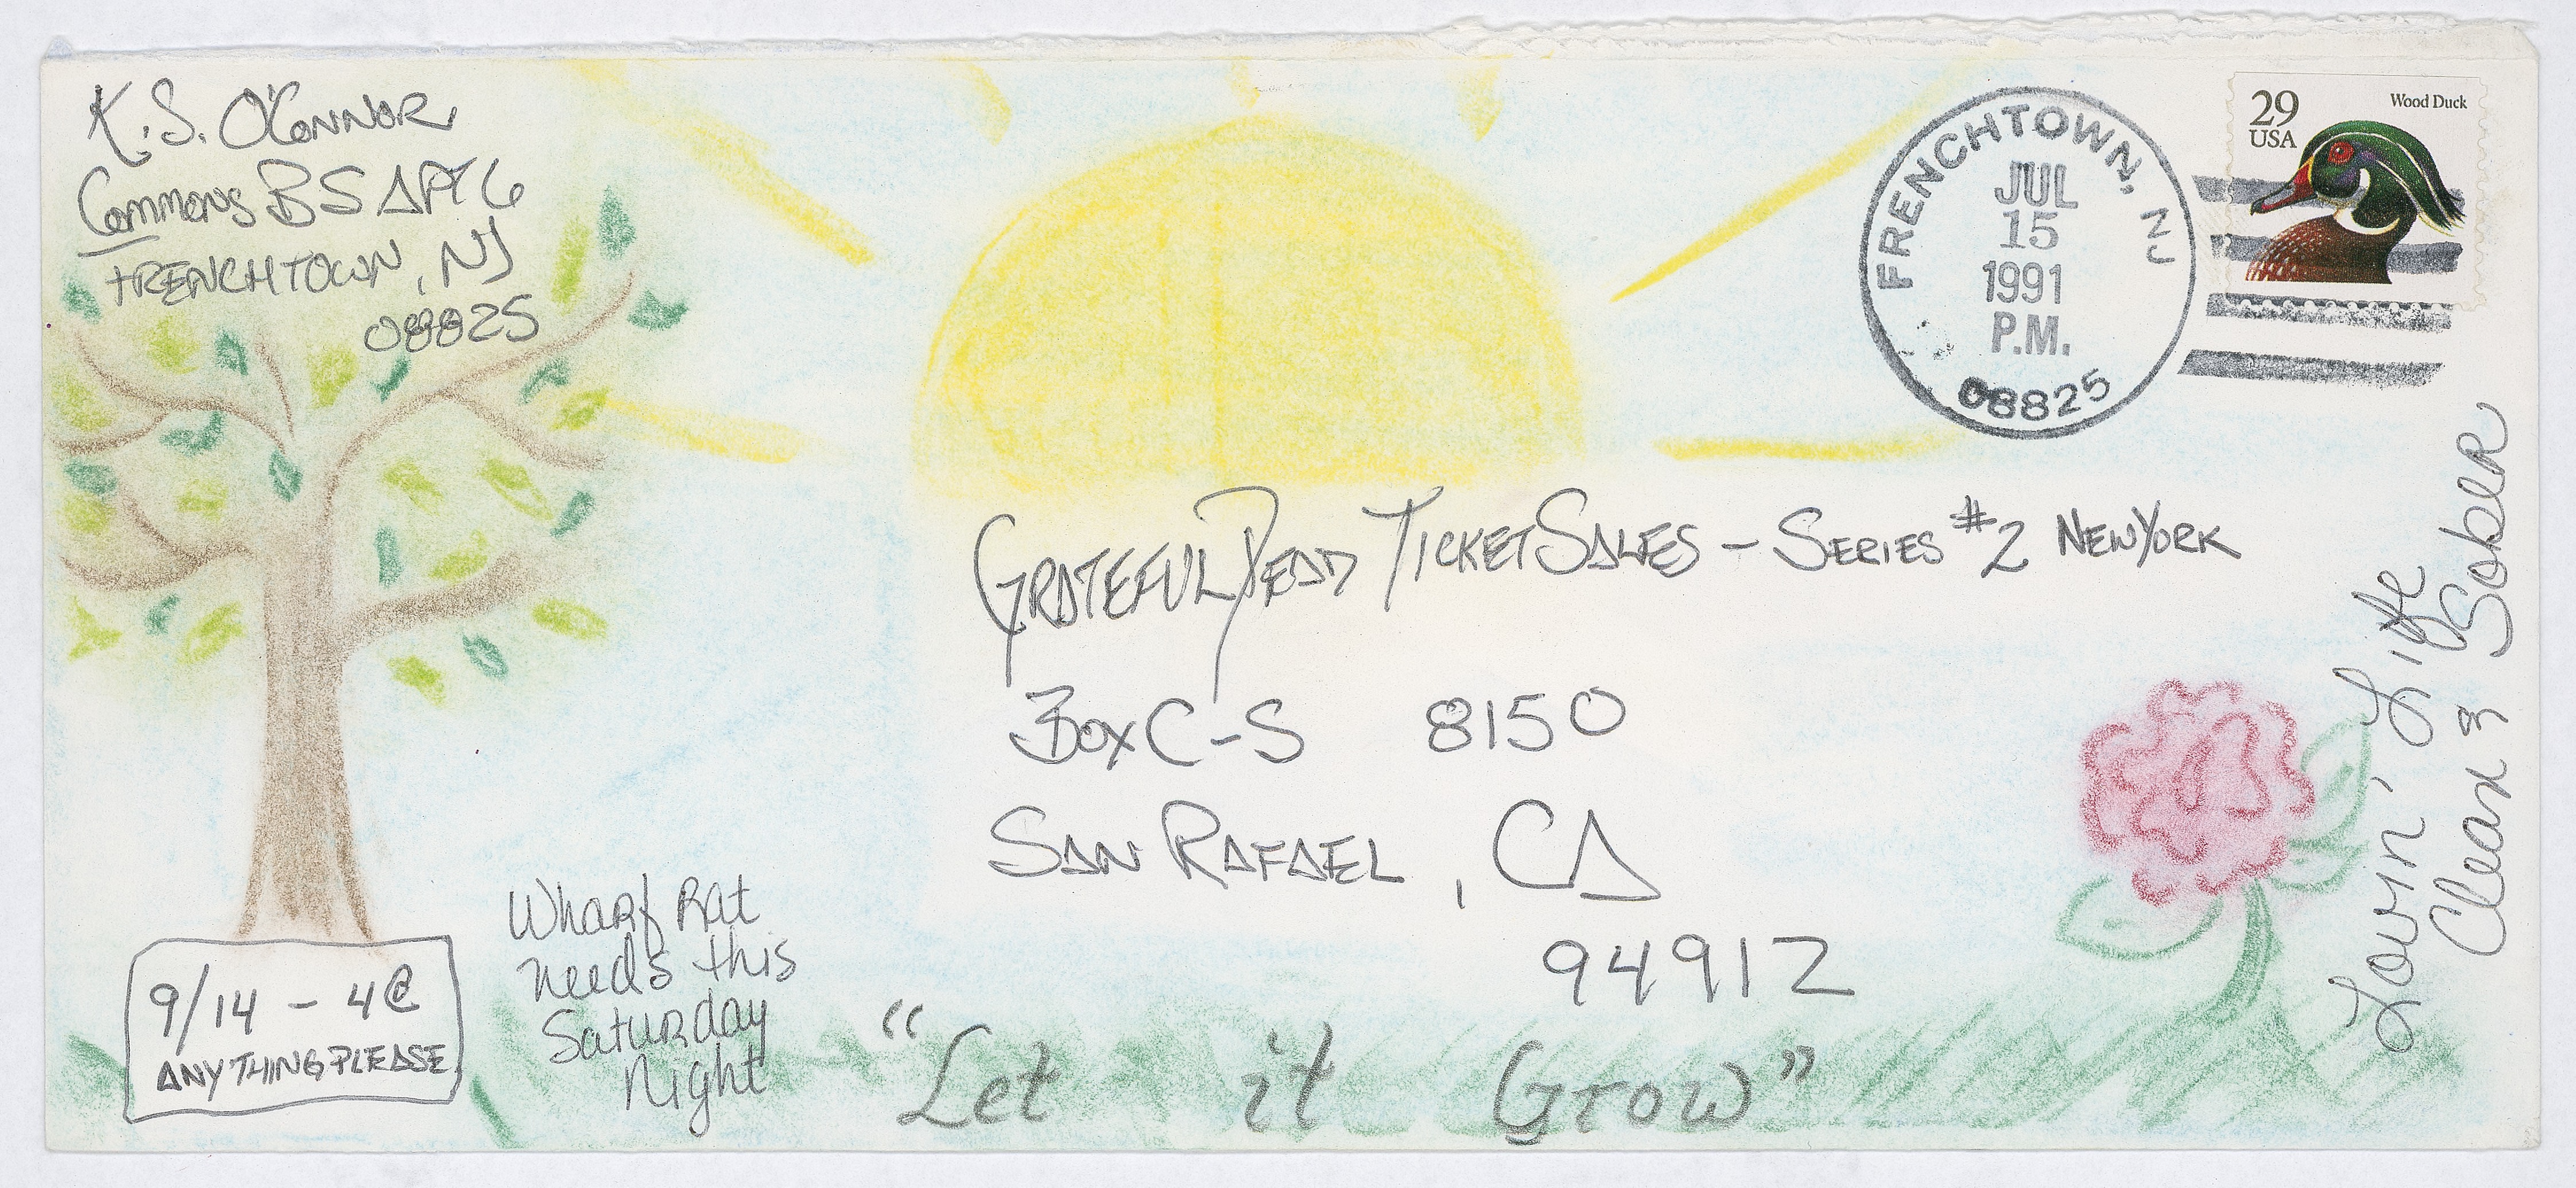 K.S. O'Connor
Commons B5 APT 6
FRENCHTOWN, NJ
08825
FRENCHTOWN, NJ
JUL
15
1991
P.M.
08825
29
USA
Wood Duck
GRATEFUL DEAD TICKET SALES - SERIES #2 NEW YORK
Box C-S 8150
SAN RAFAEL, CA
94912
Lovin' Life
Clean & Sober
9/14 - 4@
ANYTHING PLEASE
Wharf Rat
needs this
Saturday
Night
"Let it Grow"